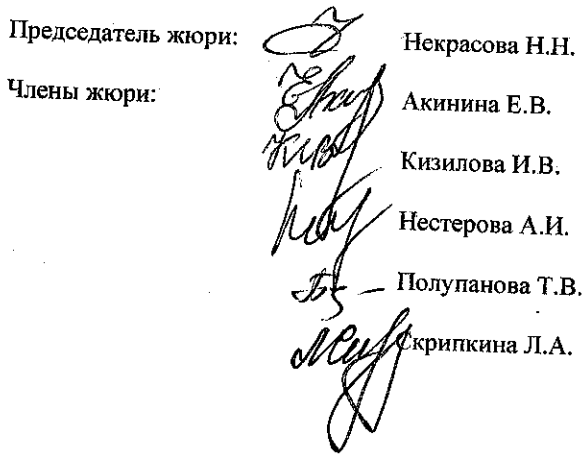 Председатель жюри: Некрасова Н.Н.
Члены жюри: Акинина Е.В.
Кизилова И.В.
Нестерова А.И.
Полупанова Т.В.
Скрипкина Л.А.